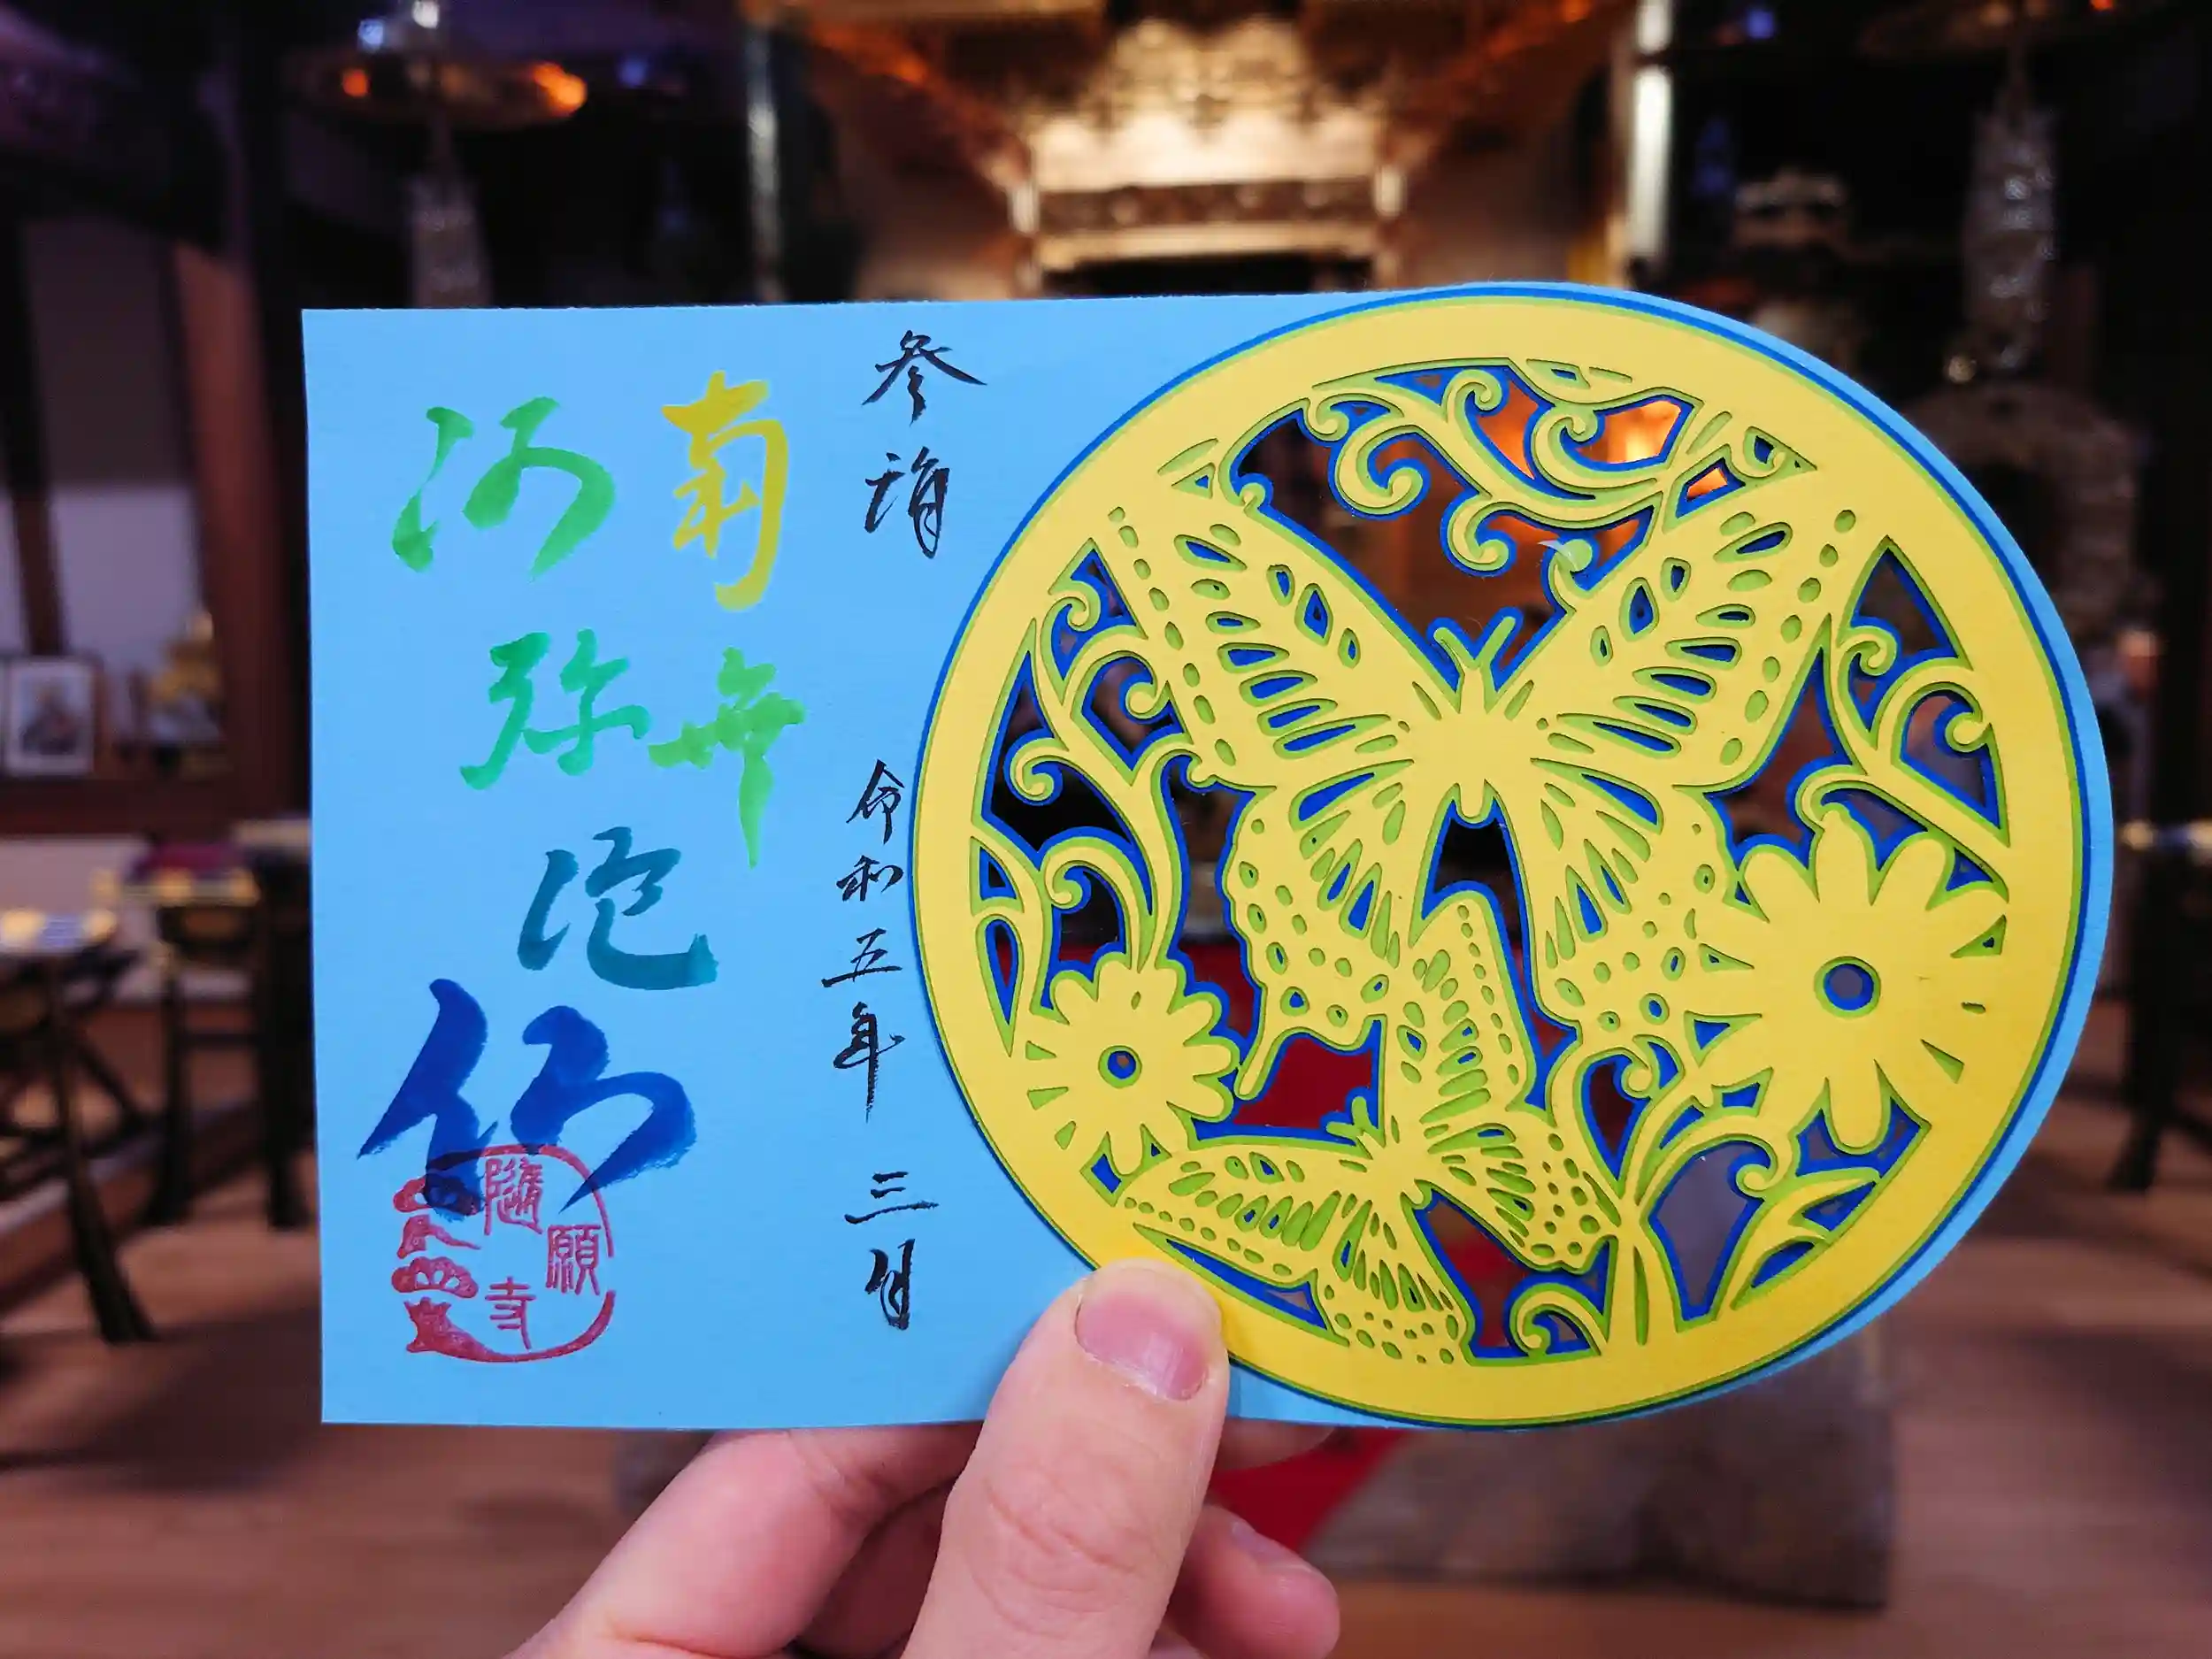 参詣　令和五年　三月
南無
阿弥陀佛
隨願寺